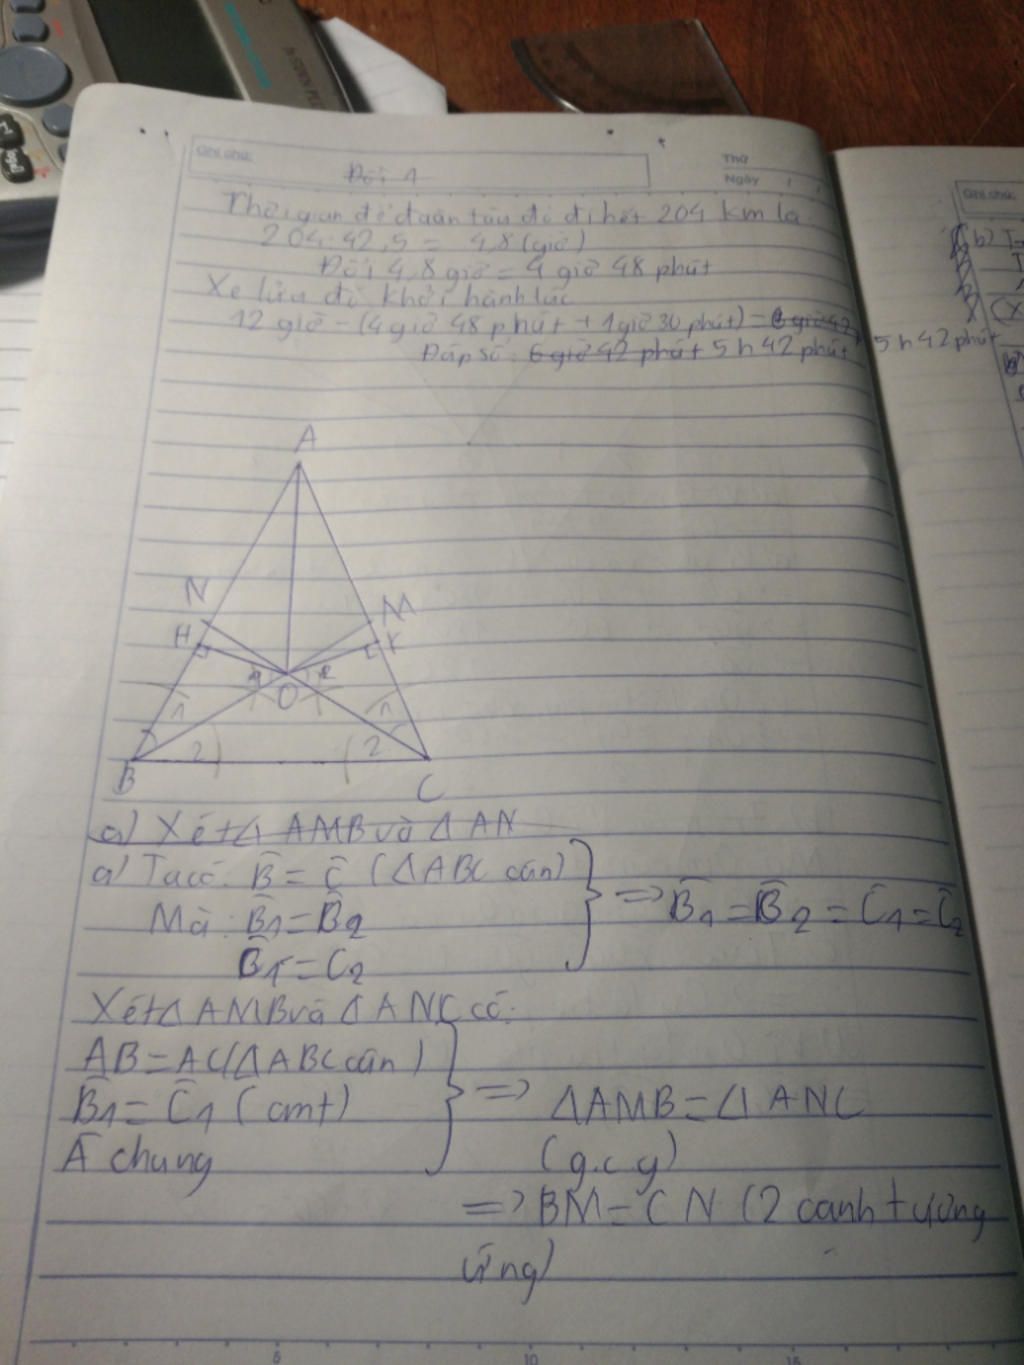 Ghi chú:
Thứ
Ngày / /
Đổi 1
Thời gian để đoàn tàu đó đi hết 204 km là
204:42,5 = 4,8 (giờ)
Đổi 4,8 giờ = 4 giờ 48 phút
Xe lửa đó khởi hành lúc
12 giờ - (4 giờ 48 phút + 1 giờ 30 phút) = 6 giờ 42 5 h 42 phút
Đáp số: 6 giờ 42 phút 5 h 42 phút
A
N
M
H
K
O
1
1
2
2
B
C
a) Xét Δ AMB và Δ AN
a) Ta có: B = C (ΔABC cân)
Mà: B1 = B2
B1 = C2
=> B1 = B2 = C1 = C2
Xét Δ AMB và Δ ANC có:
AB = AC (ΔABC cân)
B1 = C1 (cmt)
A chung
=> ΔAMB = Δ ANC
(g.c.g)
=> BM = CN (2 cạnh tương
ứng)
Ghi chú:
b)
5
10
15